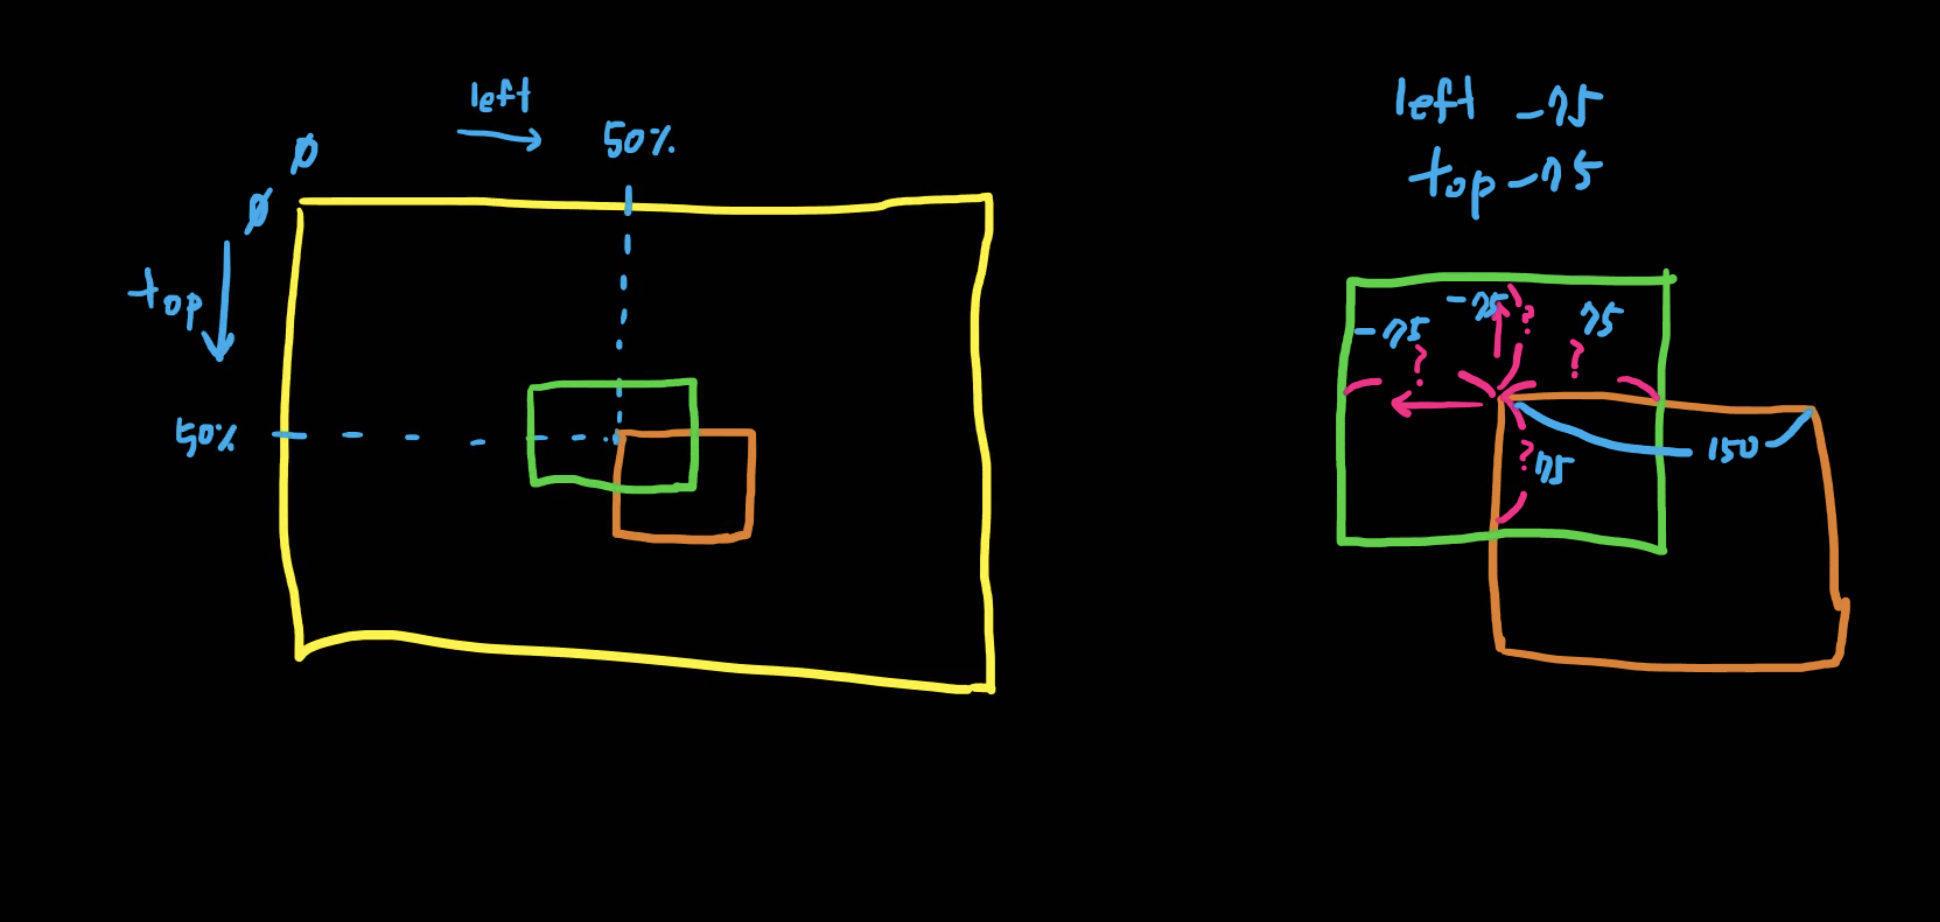 left
50%
0
0
top
50%
left -75
top -75
-75
?
75
-75
?
?
150
?
75